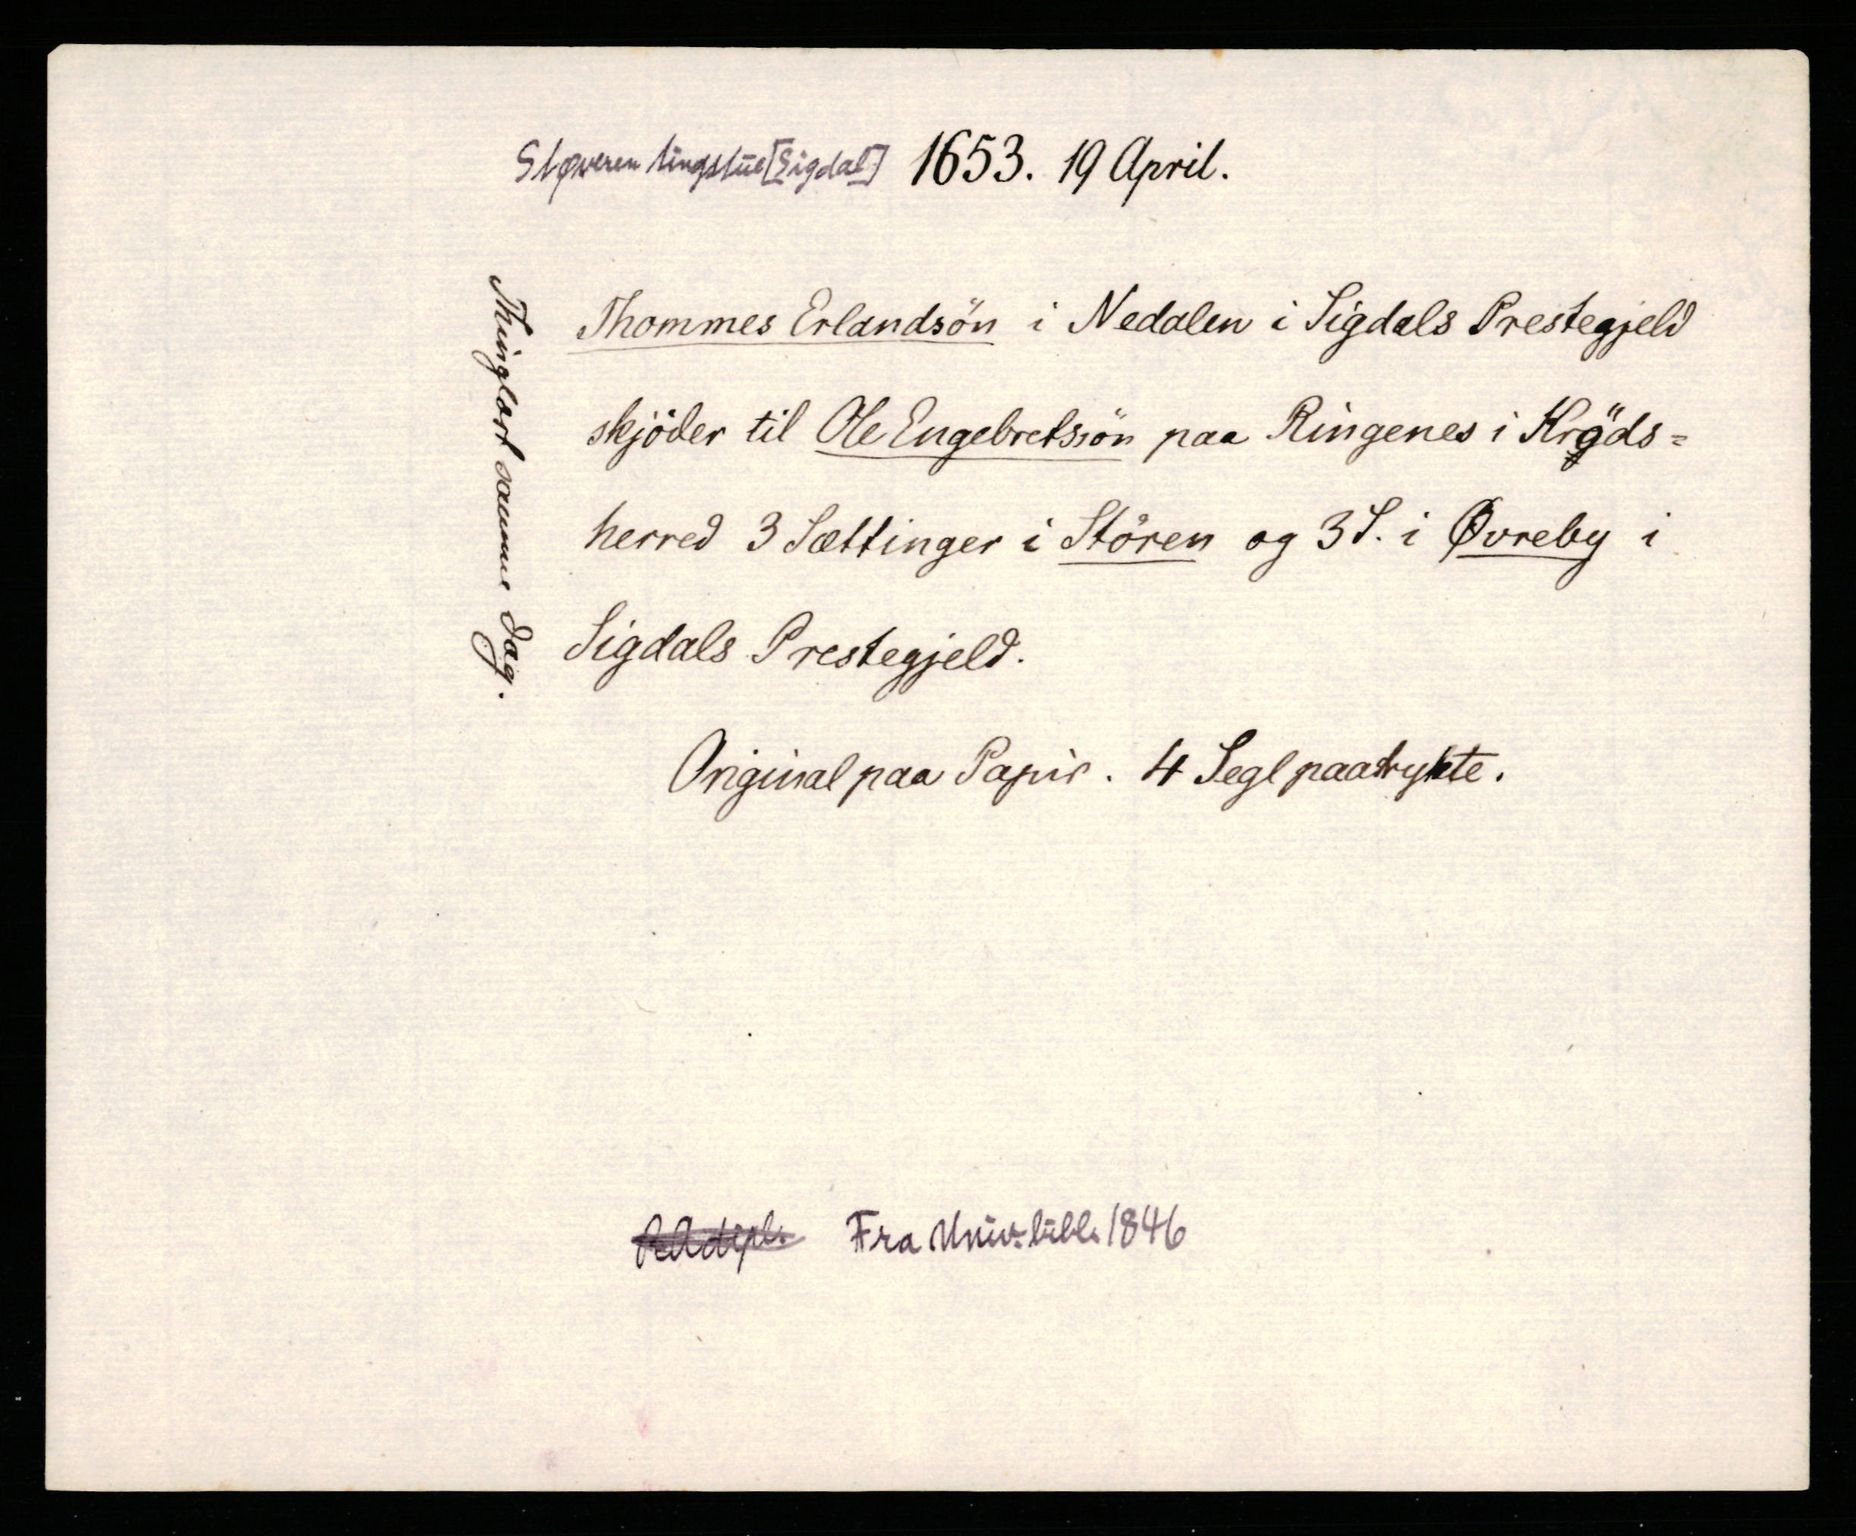 Støveren tingstue [Sigdal] 1653. 19 April.
Thinglæst samme Dag.
Thommes Erlandsön i Nedalen i Sigdals Prestegjeld
skjöder til Ole Engebretssön paa Ringenes i Kröds=
herred 3 Sættinger i Stören og 3 S. i Øvreby i
Sigdals Prestegjeld.
Original paa Papir. 4 Segl paatrykte.
Fra Univ. bibl. 1846